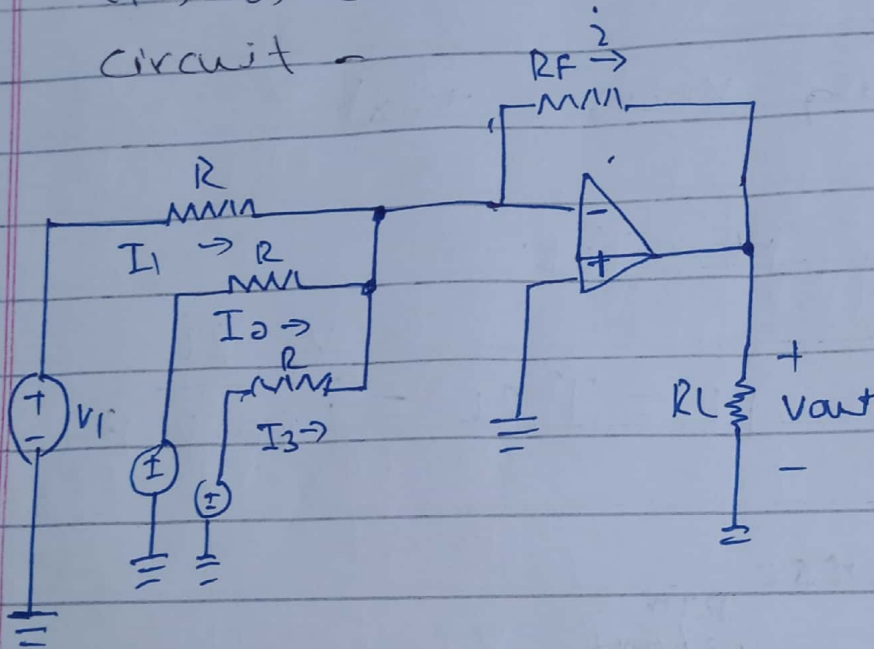 circuit -
i
RF →
R
I1 →
R
I2 →
R
I3 →
-
+
+
-
V1
±
±
RL
+
Vout
-